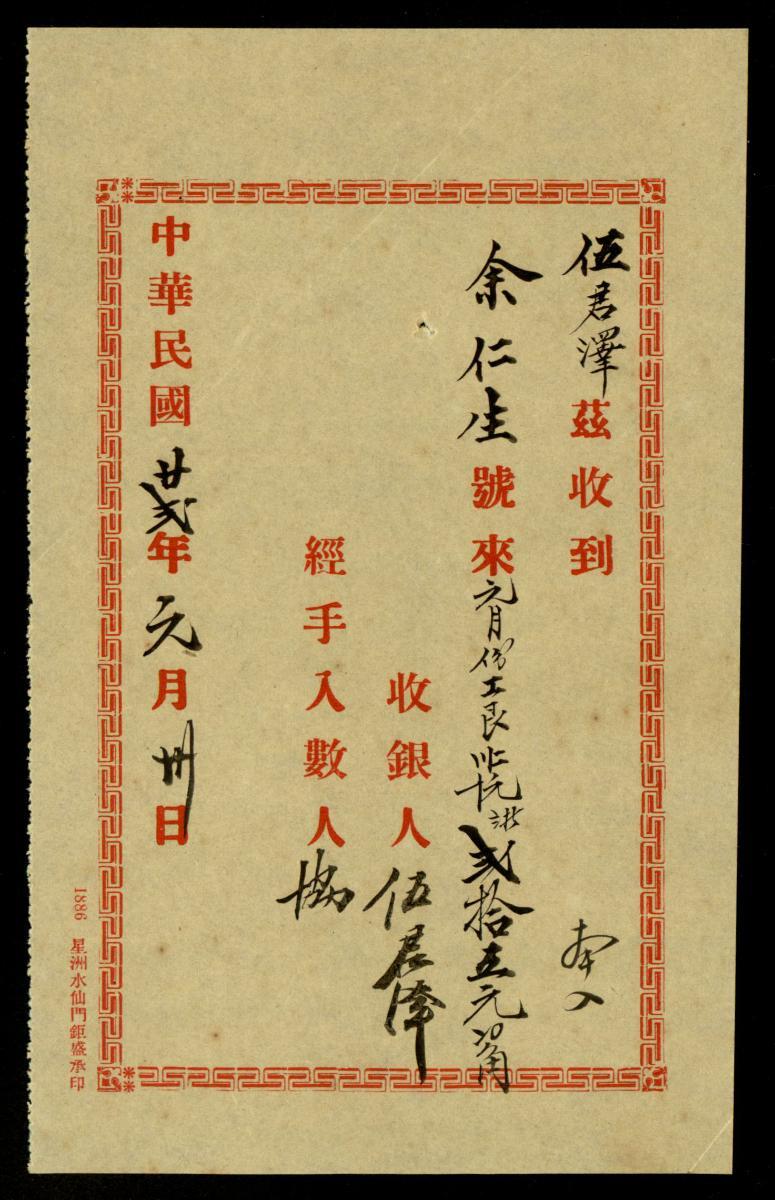 伍君澤茲收到
本入
余仁生號來元月份工艮 貳拾五元
收銀人伍君澤
經手入數人協
中華民國廿貳年元月卅日
1886 星洲水仙門鉅盛承印